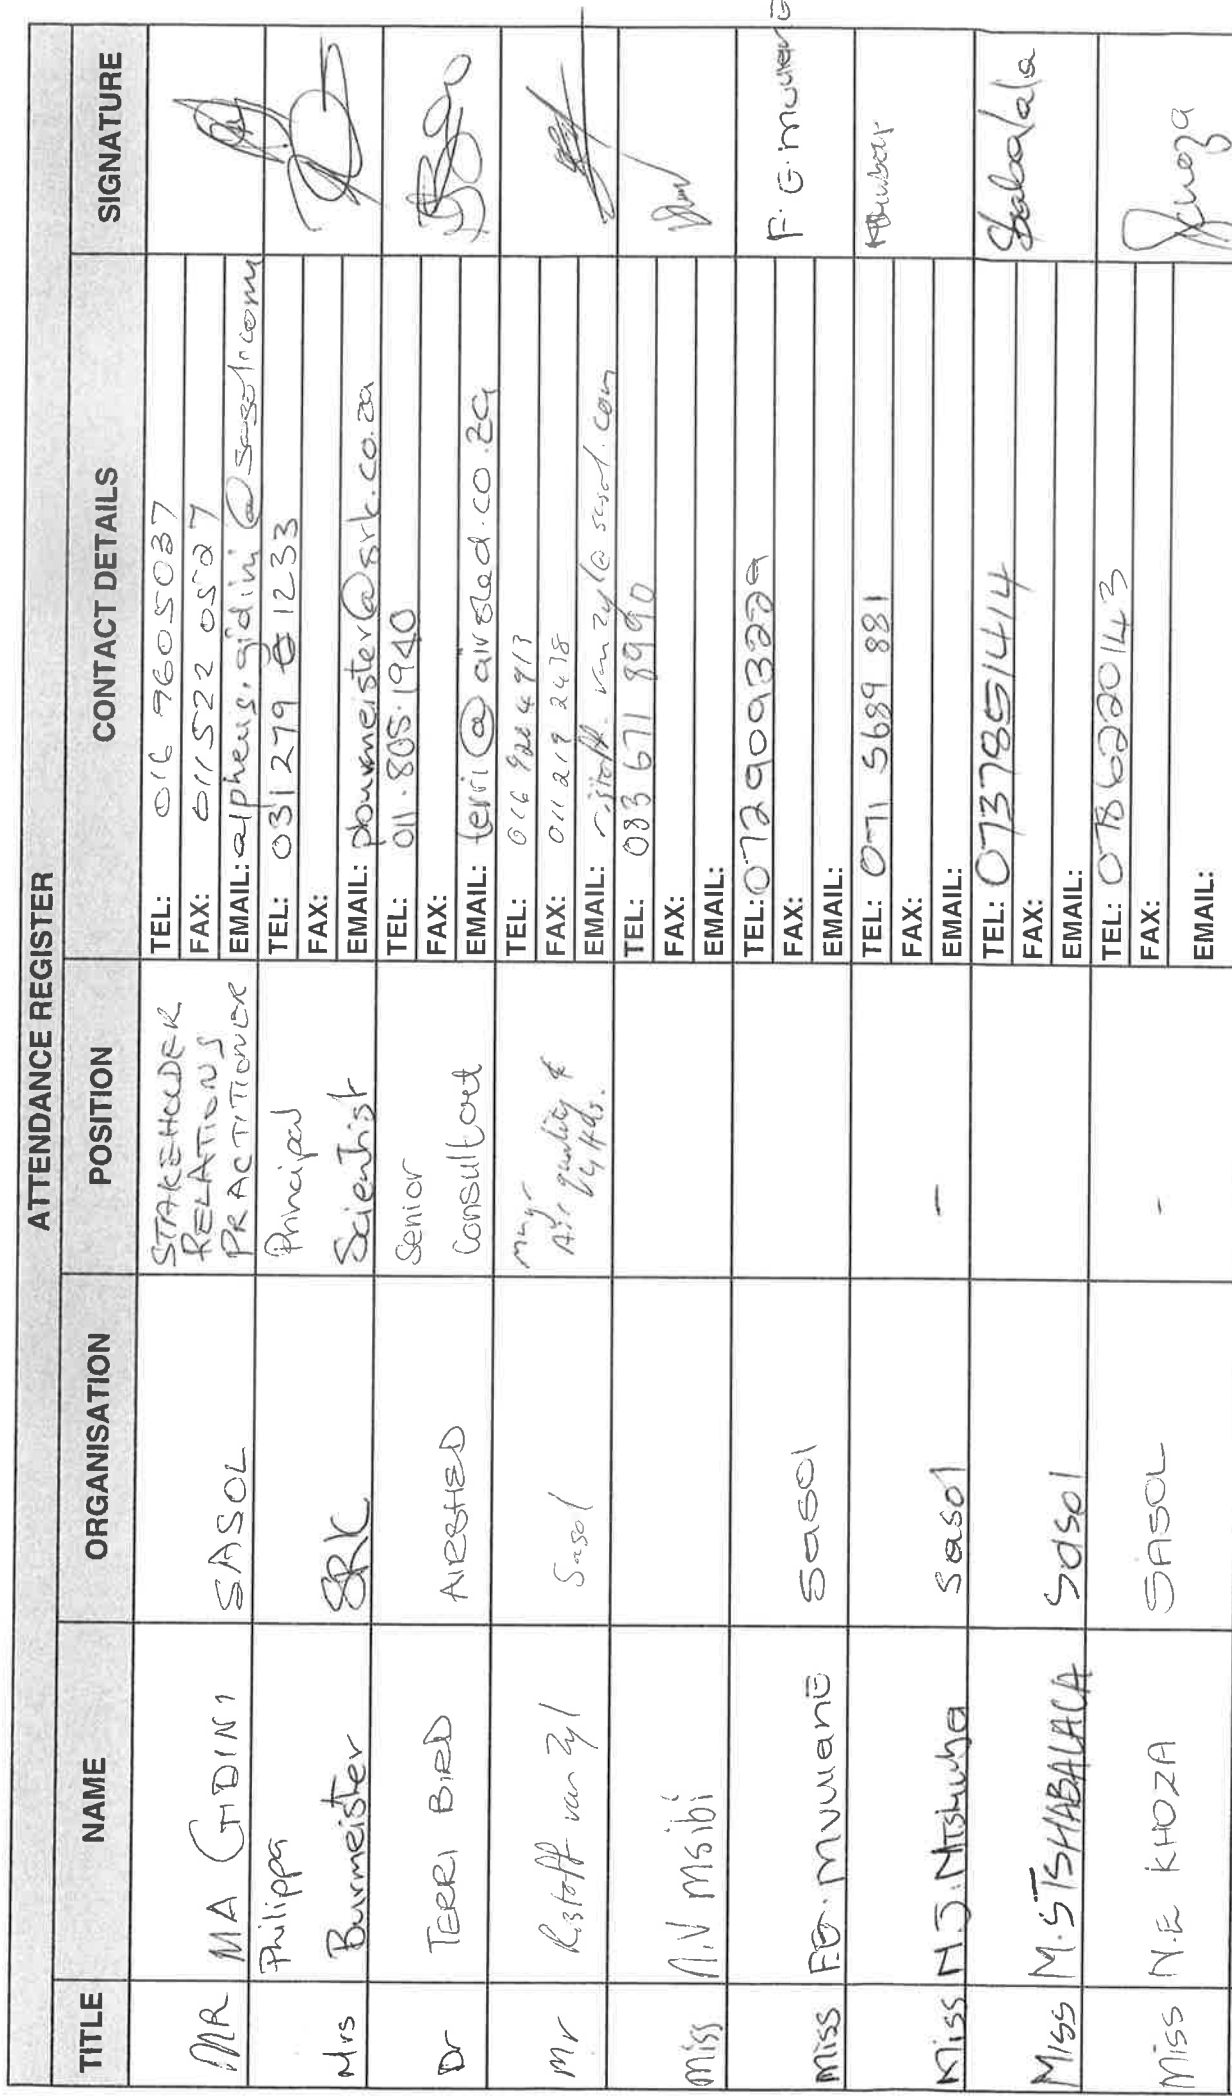 ATTENDANCE REGISTER
TITLE NAME ORGANISATION POSITION CONTACT DETAILS SIGNATURE
MR MA GIDINI SASOL STAKEHOLDER RELATIONS PRACTITIONER
TEL: 016 9605037
FAX: 011 522 0527
EMAIL: alpheus.gidini@sasol.com
Mrs Philippa Burmeister SRK Principal Scientist
TEL: 031 279 1233
FAX:
EMAIL: pburmeister@srk.co.za
Dr TERRI BIRD AIRSHED Senior Consultant
TEL: 011.805.1940
FAX:
EMAIL: terri@airshed.co.za
Mr Ristoff van Zyl Sasol Mngr Air quality &
TEL: 016
FAX: 011 219 2438
EMAIL: ristoff.vanzyl@sasol.com
Miss N.V Msibi
TEL: 083 671 8990
FAX:
EMAIL:
Miss F.G. Mvulane Sasol
TEL: 0729093229 F.G.Mvulane
FAX:
EMAIL:
Miss N.J. Mtshunya Sasol -
TEL: 071 5689 881
FAX:
EMAIL:
Miss M.S TSHABALALA Sasol
TEL: 0737851414 Shabalala
FAX:
EMAIL:
Miss N.E KHOZA SASOL -
TEL: 0786220143 Khoza
FAX:
EMAIL: